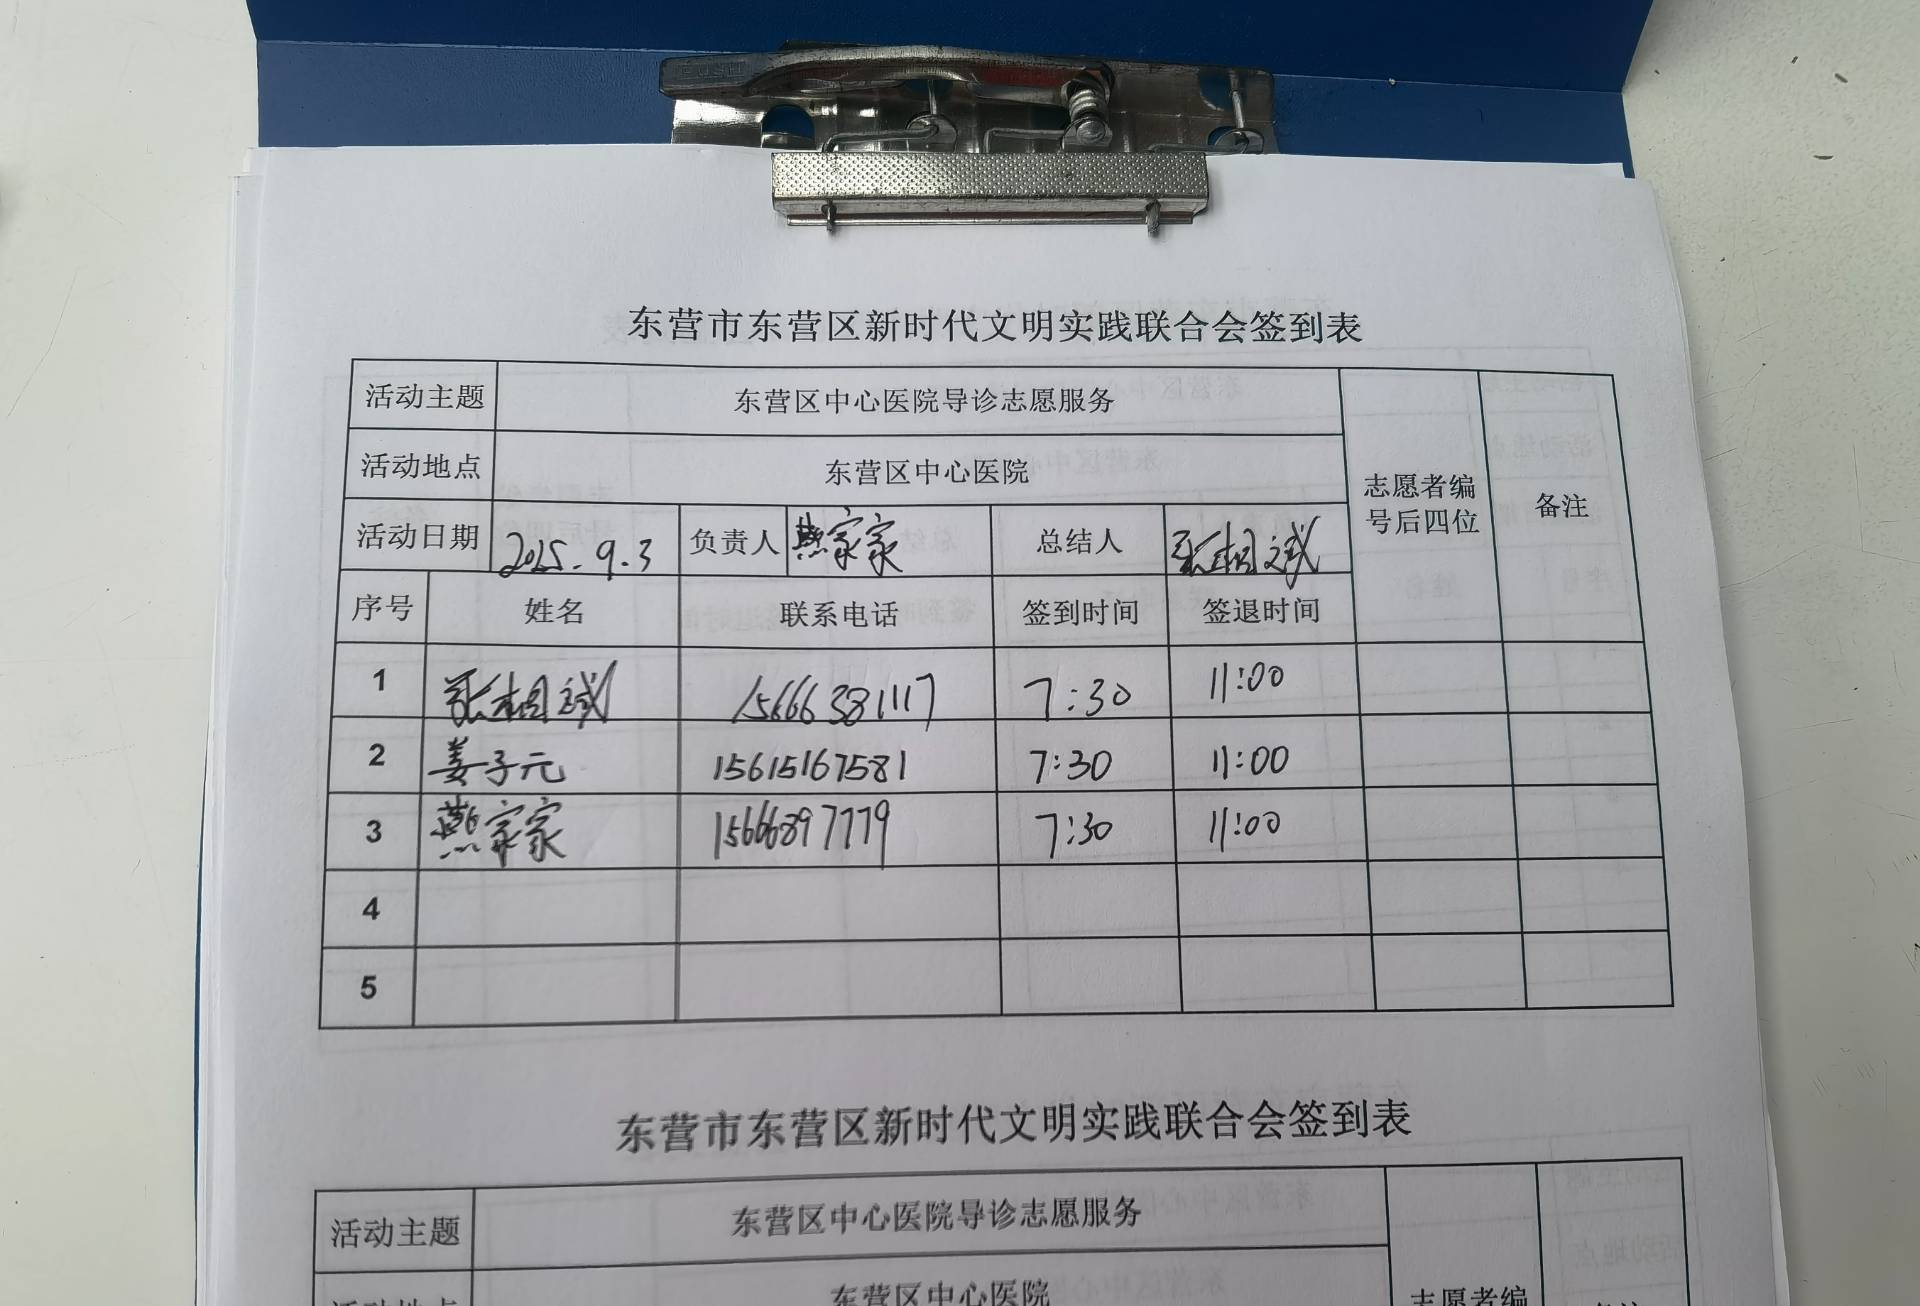 东营市东营区新时代文明实践联合会签到表
活动主题 东营区中心医院导诊志愿服务
活动地点 东营区中心医院
志愿者编号后四位 备注
活动日期 2025.9.3 负责人 燕家家 总结人 张相斌
序号 姓名 联系电话 签到时间 签退时间
1 张相斌 15666381117 7:30 11:00
2 姜子元 15615167581 7:30 11:00
3 燕家家 15666897779 7:30 11:00
4
5
东营市东营区新时代文明实践联合会签到表
活动主题 东营区中心医院导诊志愿服务
东营区中心医院
志愿者编